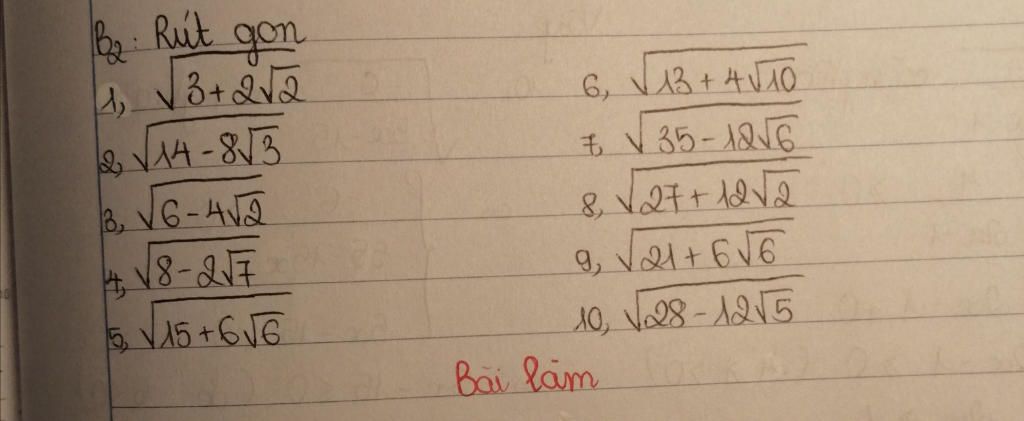 B2: Rút gọn
1, √(3 + 2√2)
2, √(14 - 8√3)
3, √(6 - 4√2)
4, √(8 - 2√7)
5, √(15 + 6√6)
6, √(13 + 4√10)
7, √(35 - 12√6)
8, √(27 + 12√2)
9, √(21 + 6√6)
10, √(28 - 12√5)
Bài làm